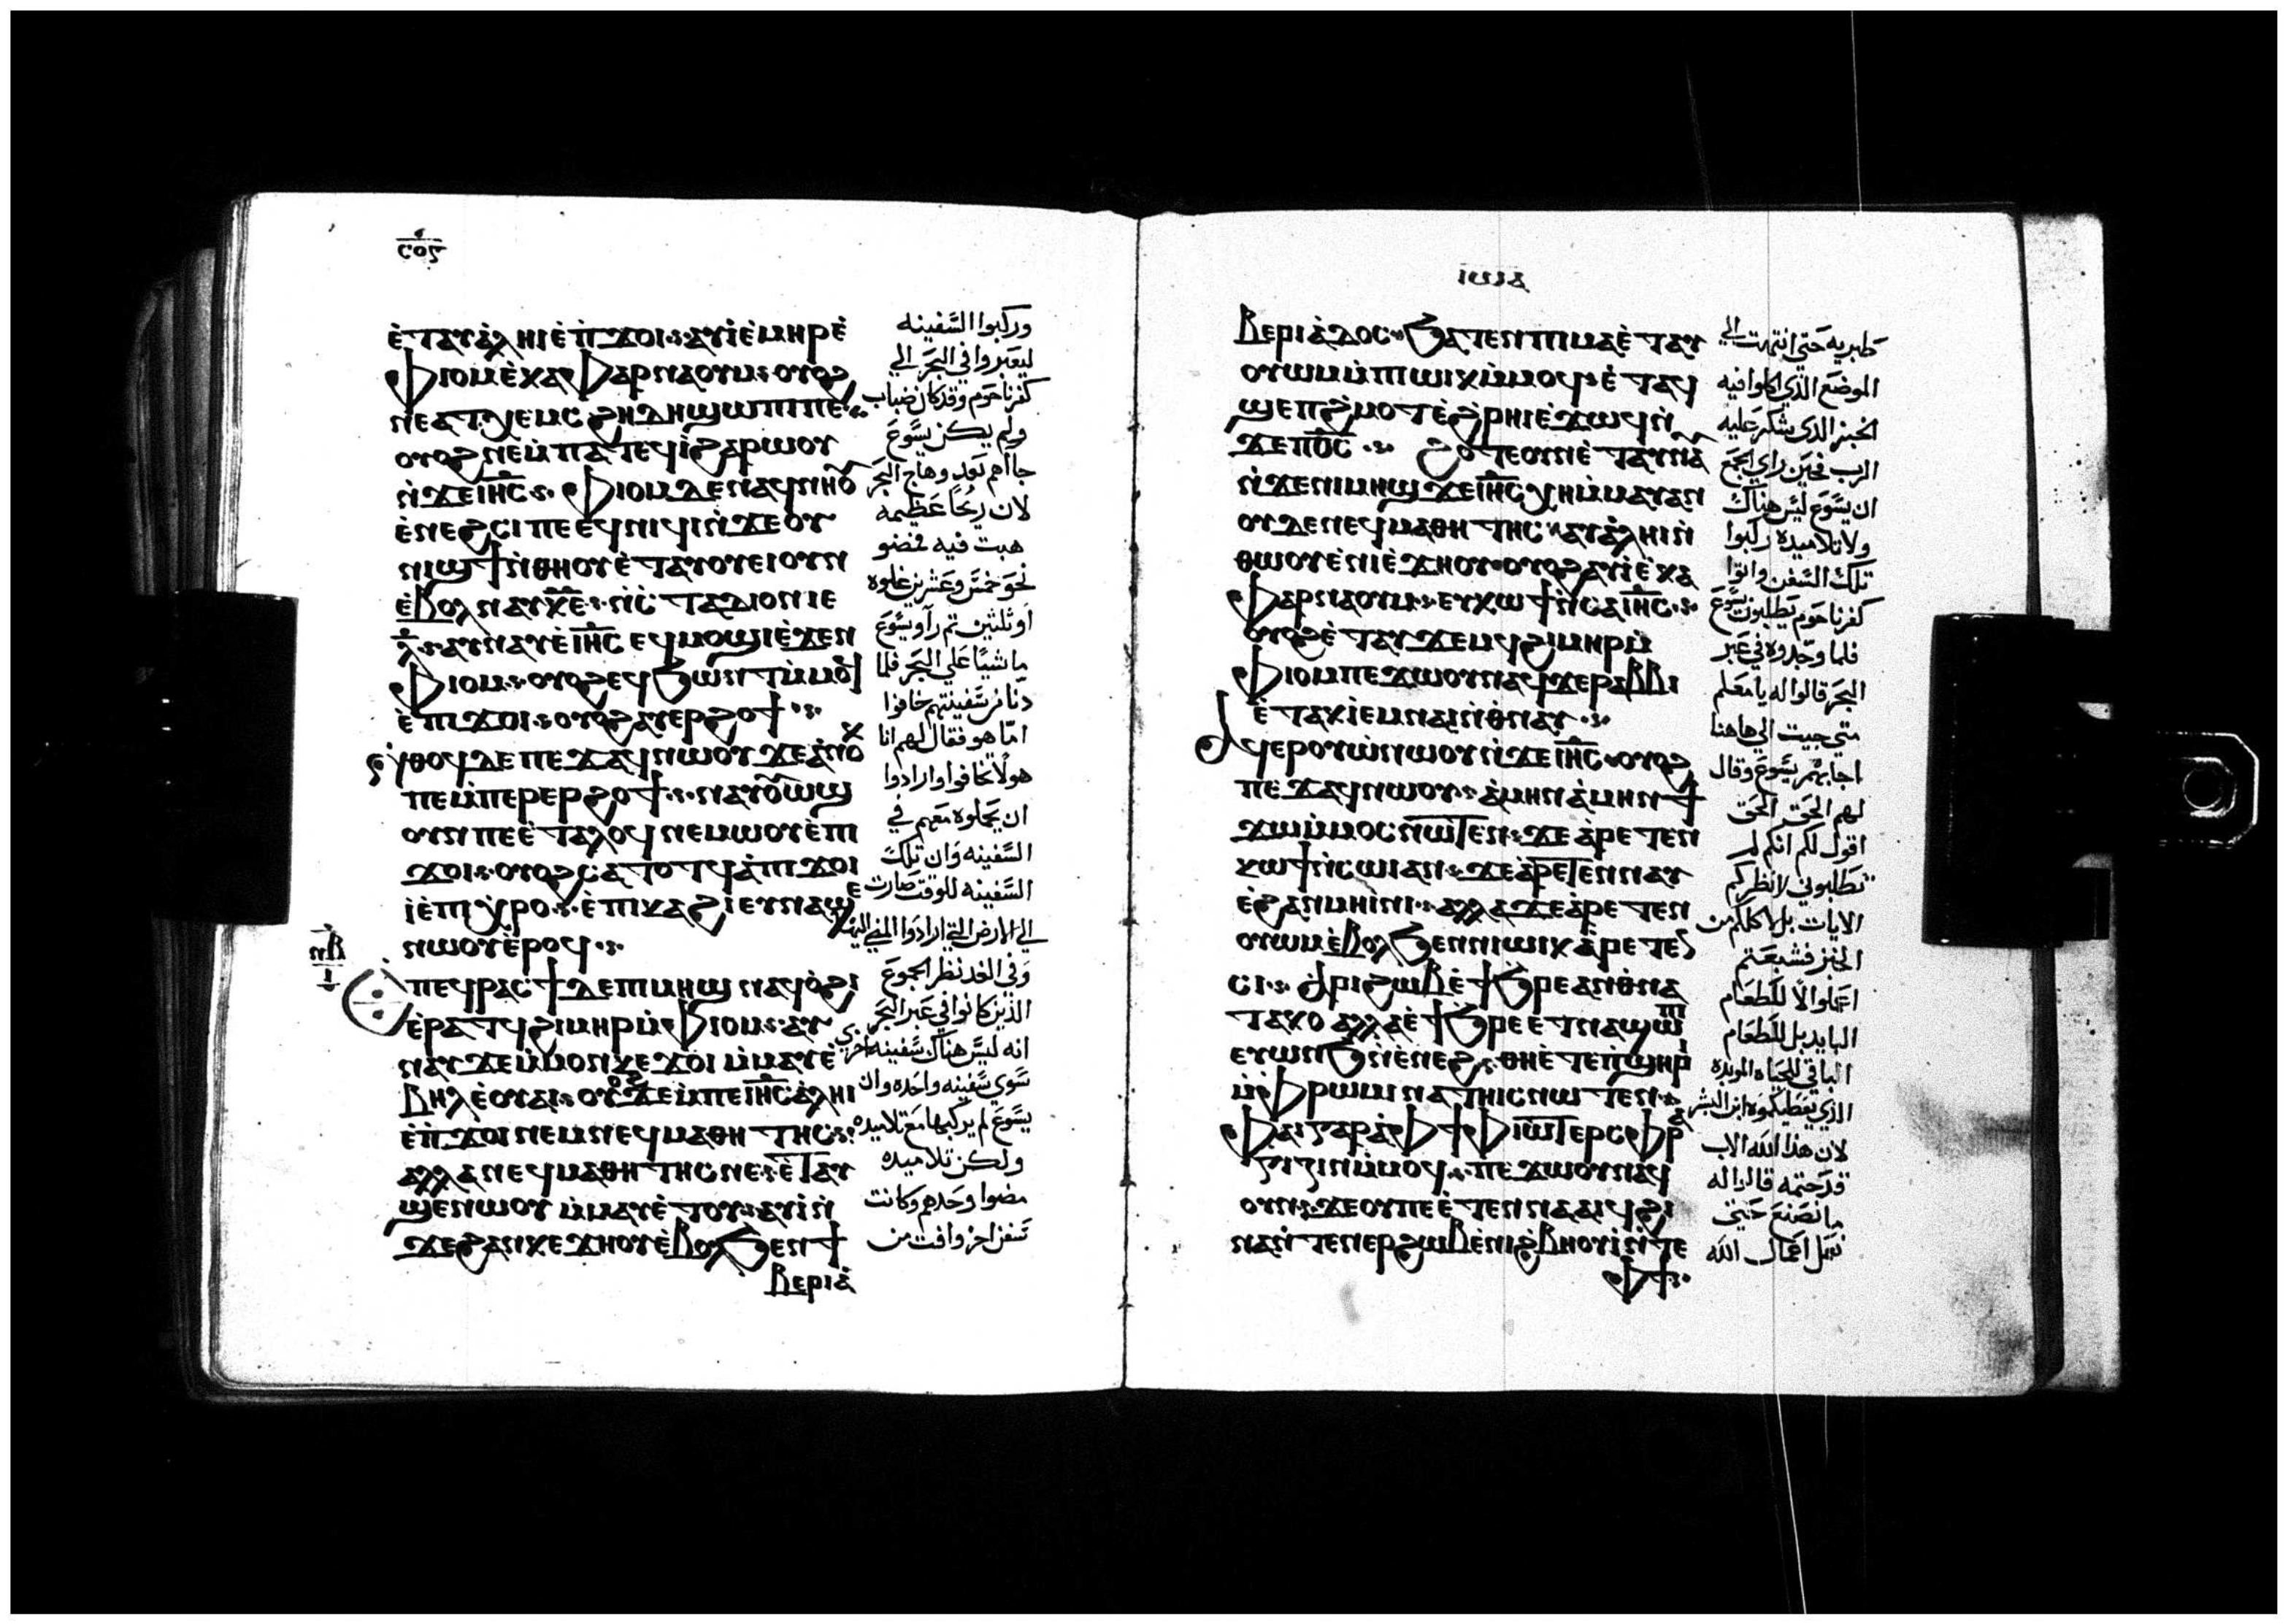 ⲥⲟⲍ
ⲉ̀ⲧⲁⲩⲁ̀ⲗⲏⲓⲉ̀ⲡ̀ϫⲟⲓ ⲁⲩⲓ̀ⲉ̀ⲙⲏⲣⲉ̀
ⲫⲓⲟⲙⲉ̀ⲕⲁⲫⲁⲣⲛⲁⲟⲩⲙ ⲟⲩⲟϩ
ⲛⲉⲁⲧⲭⲉⲙⲥ ϩⲏⲇⲏϣⲱⲡⲓⲡⲉ
ⲟⲩⲟϩⲛⲉⲙ̀ⲡⲁⲧⲉϥⲓ̀ϩⲁⲣⲱⲟⲩ
ⲛ̀ϫⲉⲓⲏⲥ ⲫⲓⲟⲙⲇⲉⲛⲁϥⲛⲏⲟⲩ
ⲉ̀ⲛⲉϩⲥⲓⲡⲉⲉϥⲛⲓϥⲓⲛ̀ϫⲉⲟⲩ
ⲛⲓϣϯⲛ̀ⲑⲏⲟⲩⲉ̀ⲧⲁⲩⲟⲩⲉⲓⲟⲩⲛ
ⲉ̀ⲃⲟⲗⲛⲁⲩⲕ̅ⲉ̅ ⲛ̀ⲥⲧⲁⲇⲓⲟⲛⲓⲉ
ⲗ̅ ⲁⲩⲛⲁⲩⲉ̀ⲓⲏⲥⲉϥⲙⲟϣⲓⲉ̀ϫⲉⲛ
ⲫⲓⲟⲙ ⲟⲩⲟϩⲉϥϧⲱⲛⲧⲙ̀ⲙⲟϥ
ⲉ̀ⲡⲓϫⲟⲓ ⲟⲩⲟϩⲁⲩⲉⲣϩⲟϯ
ⲛ̀ⲑⲟϥⲇⲉⲡⲉϫⲁϥⲛⲱⲟⲩϫⲉⲁ̀ⲛⲟⲕ
ⲡⲉⲙ̀ⲡⲉⲣⲉⲣϩⲟϯ ⲛⲁⲩⲟⲩⲱϣ
ⲟⲩⲛⲡⲉⲉ̀ⲧⲁⲗⲟϥⲛⲉⲙⲱⲟⲩⲉ̀ⲡⲓ
ϫⲟⲓ ⲟⲩⲟϩⲥⲁⲧⲟⲧϥⲁ̀ⲡⲓϫⲟⲓ
ⲓ̀ⲉ̀ⲡⲓⲭⲣⲟ ⲉ̀ⲡⲓⲕⲁϩⲓⲉⲩⲛⲁϣⲉ
ⲛⲱⲟⲩⲉ̀ⲣⲟϥ
ⲡⲉϥⲣⲁⲥϯⲇⲉⲡⲓⲙⲏϣⲛⲁϥⲟ̀ϩⲓ
ⲉ̀ⲣⲁⲧϥϩⲓⲙⲏⲣⲙ̀ⲫⲓⲟⲙ ⲁⲩ
ⲛⲁⲩϫⲉⲙ̀ⲙⲟⲛⲕⲉϫⲟⲓⲙ̀ⲙⲁⲩⲉ̀
ⲃⲏⲗⲉ̀ⲟⲩⲁⲓ ⲟⲩⲟϩϫⲉⲙ̀ⲡⲉⲓⲏⲥⲁ̀ⲗⲏⲓ
ⲉ̀ⲡ̀ϫⲟⲓⲛⲉⲙⲛⲉϥⲙⲁⲑⲏⲧⲏⲥ
ⲁⲗⲗⲁⲛⲉϥⲙⲁⲑⲏⲧⲏⲥⲛⲉ ⲉ̀ⲧⲁⲩ
ϣⲉⲛⲱⲟⲩⲙ̀ⲙⲁⲩⲁ̀ⲧⲟⲩ ⲁⲩⲓ̀ⲛ̀
ϫⲉϩⲁⲛⲕⲉϫⲏⲟⲩⲉ̀ⲃⲟⲗϧⲉⲛϯ
ⲃⲉⲣⲓⲁ̀
وركبوا السفينه
ليعبروا في البحر الي
كفرناحوم وقد كان ضباب
ولم يكن يسوع
جااهم بعد وهاج البحر
لان ريحًا عظيمه
هبت فيه فمضو
نحو خمس وعشرين غلوه
او ثلثين ثم رآو يسوع
ماشيًا علي البحر فلما
دنا من سفينتهم خافوا
اما هو فقال لهم انا
هو لا تخافوا وارادوا
ان يحملوه معهم في
السفينه وان تلك
السفينه للوقت صارت
الي الارض التي ارادوا المضي اليها
وفي الغد نظر الجموع
الذين كانوا في عبر البحر
انه ليس هناك سفينه اخري
سوي سفينه واحده وان
يسوع لم يركبها مع تلاميده
ولكن تلاميده
مضوا وحدهم وكانت
سفن اخر وافت من
ⲓⲱⲁ
ⲃⲉⲣⲓⲁ̀ⲇⲟⲥ ϧⲁⲧⲉⲛⲡⲓⲙⲁⲉ̀ⲧⲁⲩ
ⲟⲩⲱⲙⲙ̀ⲡⲱⲓⲕⲙ̀ⲙⲟϥ ⲉ̀ⲧⲁϥ
ϣⲉⲡϩ̀ⲙⲟⲧⲉ̀ϩ̀ⲣⲏⲓⲉ̀ϫⲱϥⲛ̀
ϫⲉⲡⲟ̅ⲥ̅ ϩⲟⲧⲉⲟⲩⲛⲉ̀ⲧⲁⲩⲛⲁⲩ
ⲛ̀ϫⲉⲛⲓⲙⲏϣϫⲉⲓⲏⲥⲭⲏⲙ̀ⲙⲁⲩⲁⲛ
ⲟⲩⲇⲉⲛⲉϥⲙⲁⲑⲏⲧⲏⲥ ⲁⲩⲁ̀ⲗⲏⲓⲛ̀
ⲑⲱⲟⲩⲉ̀ⲛⲓⲉ̀ϫⲏⲟⲩ ⲟⲩⲟϩⲁⲩⲓ̀ⲉ̀ⲕⲁ
ⲫⲁⲣⲛⲁⲟⲩⲙ ⲉⲩⲕⲱϯⲛ̀ⲥⲁⲓⲏⲥ
ⲟⲩⲟϩⲉ̀ⲧⲁⲩϫⲉⲙϥϩⲓⲙⲏⲣⲙ̀
ⲫⲓⲟⲙⲡⲉϫⲱⲟⲩⲛⲁϥϫⲉⲣⲁⲃⲃⲓ
ⲉ̀ⲧⲁⲕⲓ̀ⲉⲙⲛⲁⲓⲛ̀ⲑⲛⲁⲩ
ⲁϥⲉⲣⲟⲩⲱ̀ⲛⲱⲟⲩⲛ̀ϫⲉⲓⲏⲥ ⲟⲩⲟϩ
ⲡⲉϫⲁϥⲛⲱⲟⲩ ⲁ̀ⲙⲏⲛⲁ̀ⲙⲏⲛϯ
ϫⲱⲙ̀ⲙⲟⲥⲛⲱⲧⲉⲛ ϫⲉⲁ̀ⲣⲉⲧⲉⲛ
ⲕⲱϯⲛ̀ⲥⲱⲓⲁⲛ ϫⲉⲁ̀ⲣⲉⲧⲉⲛⲛⲁⲩ
ⲉ̀ϩⲁⲛⲙⲏⲓⲛⲓ ⲁⲗⲗⲁϫⲉⲁ̀ⲣⲉⲧⲉⲛ
ⲟⲩⲱⲙⲉ̀ⲃⲟⲗϧⲉⲛⲛⲓⲱⲓⲕⲁ̀ⲣⲉⲧⲉⲛ
ⲥⲓ ⲁ̀ⲣⲓϩⲱⲃⲉ̀ϯϧⲣⲉⲁⲛⲑⲛⲁ
ⲧⲁⲕⲟⲁⲗⲗⲁⲉ̀ϯϧⲣⲉⲉⲧⲛⲁϣⲱⲡⲓ
ⲉⲩⲱⲛϧⲛ̀ⲉ̀ⲛⲉϩ ⲑⲏⲉ̀ⲧⲉⲡ̀ϣⲏⲣⲓ
ⲙ̀ⲫⲣⲱⲙⲓⲛⲁⲧⲏⲓⲥⲛⲱⲧⲉⲛ
ⲫⲁⲓⲅⲁⲣⲁ̀ⲫϯⲫⲓⲱⲧⲉⲣⲥⲫⲣⲁ
ⲅⲓⲍⲓⲛⲙ̀ⲙⲟϥ ⲡⲉϫⲱⲟⲩⲛⲁϥ
ⲟⲩⲛ ϫⲉⲟⲩⲡⲉⲉ̀ⲧⲉⲛⲛⲁⲁⲓϥϩⲓ
ⲛⲁⲛ̀ⲧⲉⲛⲉⲣϩⲱⲃⲉ̀ⲛⲓϩ̀ⲃⲏⲟⲩⲓ̀ⲛ̀ⲧⲉ
ⲫϯ
طبريه حتي انتهت الي
الموضع الذي اكلوا فيه
الخبز الذي شكر عليه
الرب فحين راي الجمع
ان يسوع ليس هناك
ولا تلاميده ركبوا
تلك السفن واتوا
كفرناحوم يطلبون يسوع
فلما وجدوه في عبر
البحر قالوا له يا معلم
متي جيت الي هاهنا
اجابهم يسوع وقال
لهم الحق الحق
اقول لكم انكم لم
تطلبوني لانظركم
الايات بل لاكلكم من
الخبز فشبعتم
اعملوا لا للطعام
البايد بل للطعام
الباقي للحياه الموبده
الذي يعطيكموه ابن البشر
لان هذا الله الاب
قد ختمه قالوا له
ما نصنع حتي
نعمل اعمال الله